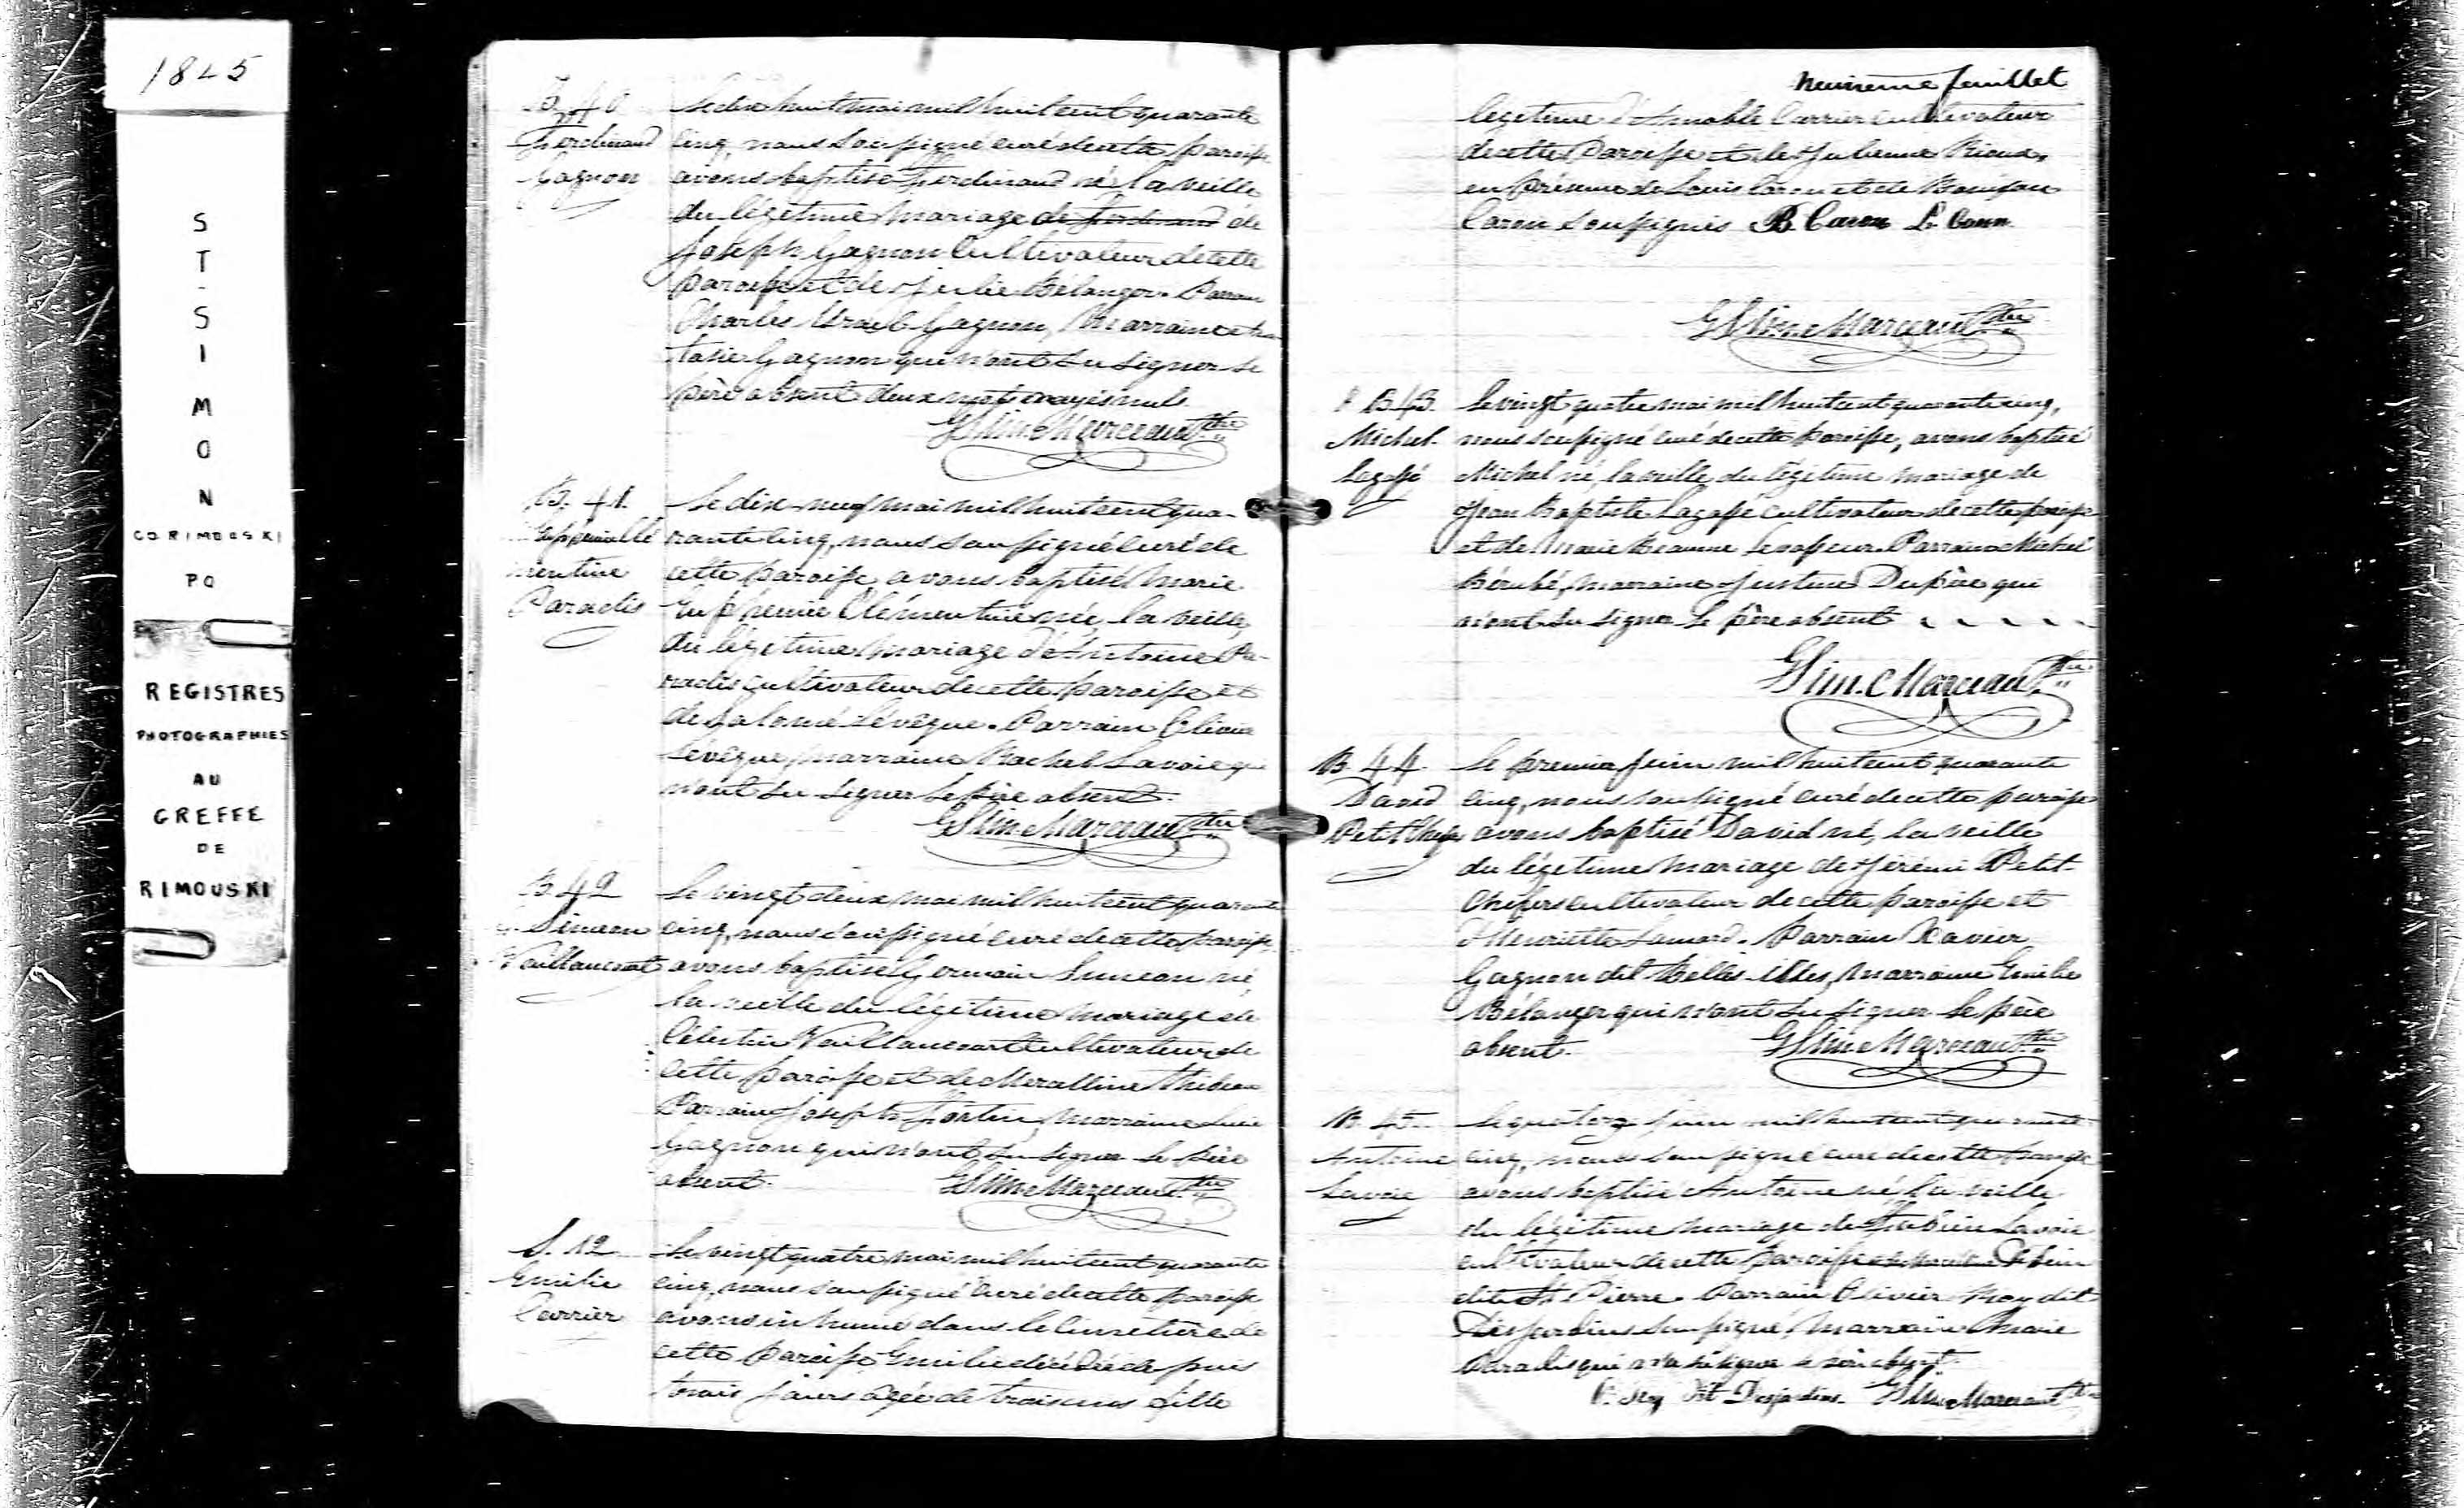 1845
ST-SIMON
CO RIMOUSKI
PQ
REGISTRES
PHOTOGRAPHIES
AU
GREFFE
DE
RIMOUSKI
B. 40
Ferdinand
Gagnon
Le dix huit mai mil huit cent quarante
cinq, nous soussigné curé de cette paroisse
avons baptisé Ferdinand né, la veille
du légetime mariage de Ferdinand de
Joseph Gagnon Cultivateur de cette
paroisse et de Julie Bélanger. Parrain
Charles Israel Gagnon, Marraine
tasie Gagnon qui n'ont su signer le
père absent deux mots rayés nuls
G Sim. Marceau Ptre
B. 41.
mentine
Paradis
Le dix-neuf mai mil huit cent qua-
rante cinq, nous soussigné curé de
cette paroisse avons baptisé Marie
Euphemie Clémentine née, la veille,
du légetime mariage d'Antoine Pa-
radis cultivateur de cette paroisse et
de Salomé Lévêque. Parrain Olivier
Levêque, marraine Rachel Lavoie qui
n'ont su signer le père absent.
G Sim Marceau Ptre
B. 42
Simeon
Vaillancourt
Le vingt deux mai mil huit cent quarante
cinq, nous soussigné curé de cette paroisse
avons baptisé Germain Simeon né,
la veille du légetime mariage de
Célestin Vaillancourt cultivateur de
cette paroisse et de Thibeau
Parrain Joseph Fortin, marraine Lucie
Gagnon qui n'ont su signer le père
absent.
G Sim Marceau Ptre
S. 12
Emilie
Carrier
Le vingt quatre mai mil huit cent quarante
cinq, nous soussigné curé de cette paroisse
avons inhumé dans le cimetière de
cette paroisse Emilie décédée de puis
trois jours agée de trois ans fille
neuvieme feuillet
legetime d'Amable Carrier cultivateur
de cette Paroisse et de Julienne Rioux.
en présence de Louis Caron et de Boniface
Caron soussignés B. Caron L. Caron
G Sim Marceau Ptre
B 43.
Michel
Lagassé
Le vingt quatre mai mil huit cent quarante cinq,
nous soussigné curé de cette paroisse, avons baptisé
Michel né, la veille du légitime mariage de
Jean Baptiste Lagassé cultivateur de cette paroisse
et de Marie Levasseur. Parrain Michel
Bérubé, marraine Justine Dupère qui
n'ont su signer le père absent
G Sim. Marceau Ptre
B. 44.
David
Petit
Le premier juin mil huit cent quarante
cinq, nous soussigné curé de cette paroisse
avons baptisé David né, la veille
du légetime mariage de Jérémie Petit-
cultivateur de cette paroisse et
d'Henriette Parrain Xavier
Gagnon dit Belles-Isles, marraine Emilie
Bélanger qui n'ont su signer le père
absent.
G Sim Marceau Ptre
B. 45
Antoine
Lavoie
Le quatorze juin mil huit cent quarante
cinq, nous soussigné curé de cette paroisse
avons baptisé Antoine né, la veille
du légitime mariage de Fabien Lavoie
cultivateur de cette paroisse
dite St Pierre. Parrain Olivier Roy dit
Desjardins soussigné, marraine Marie
Paradis qui n'a su signer le père absent.
O. Roy dit Desjardins. G Sim Marceau Ptre